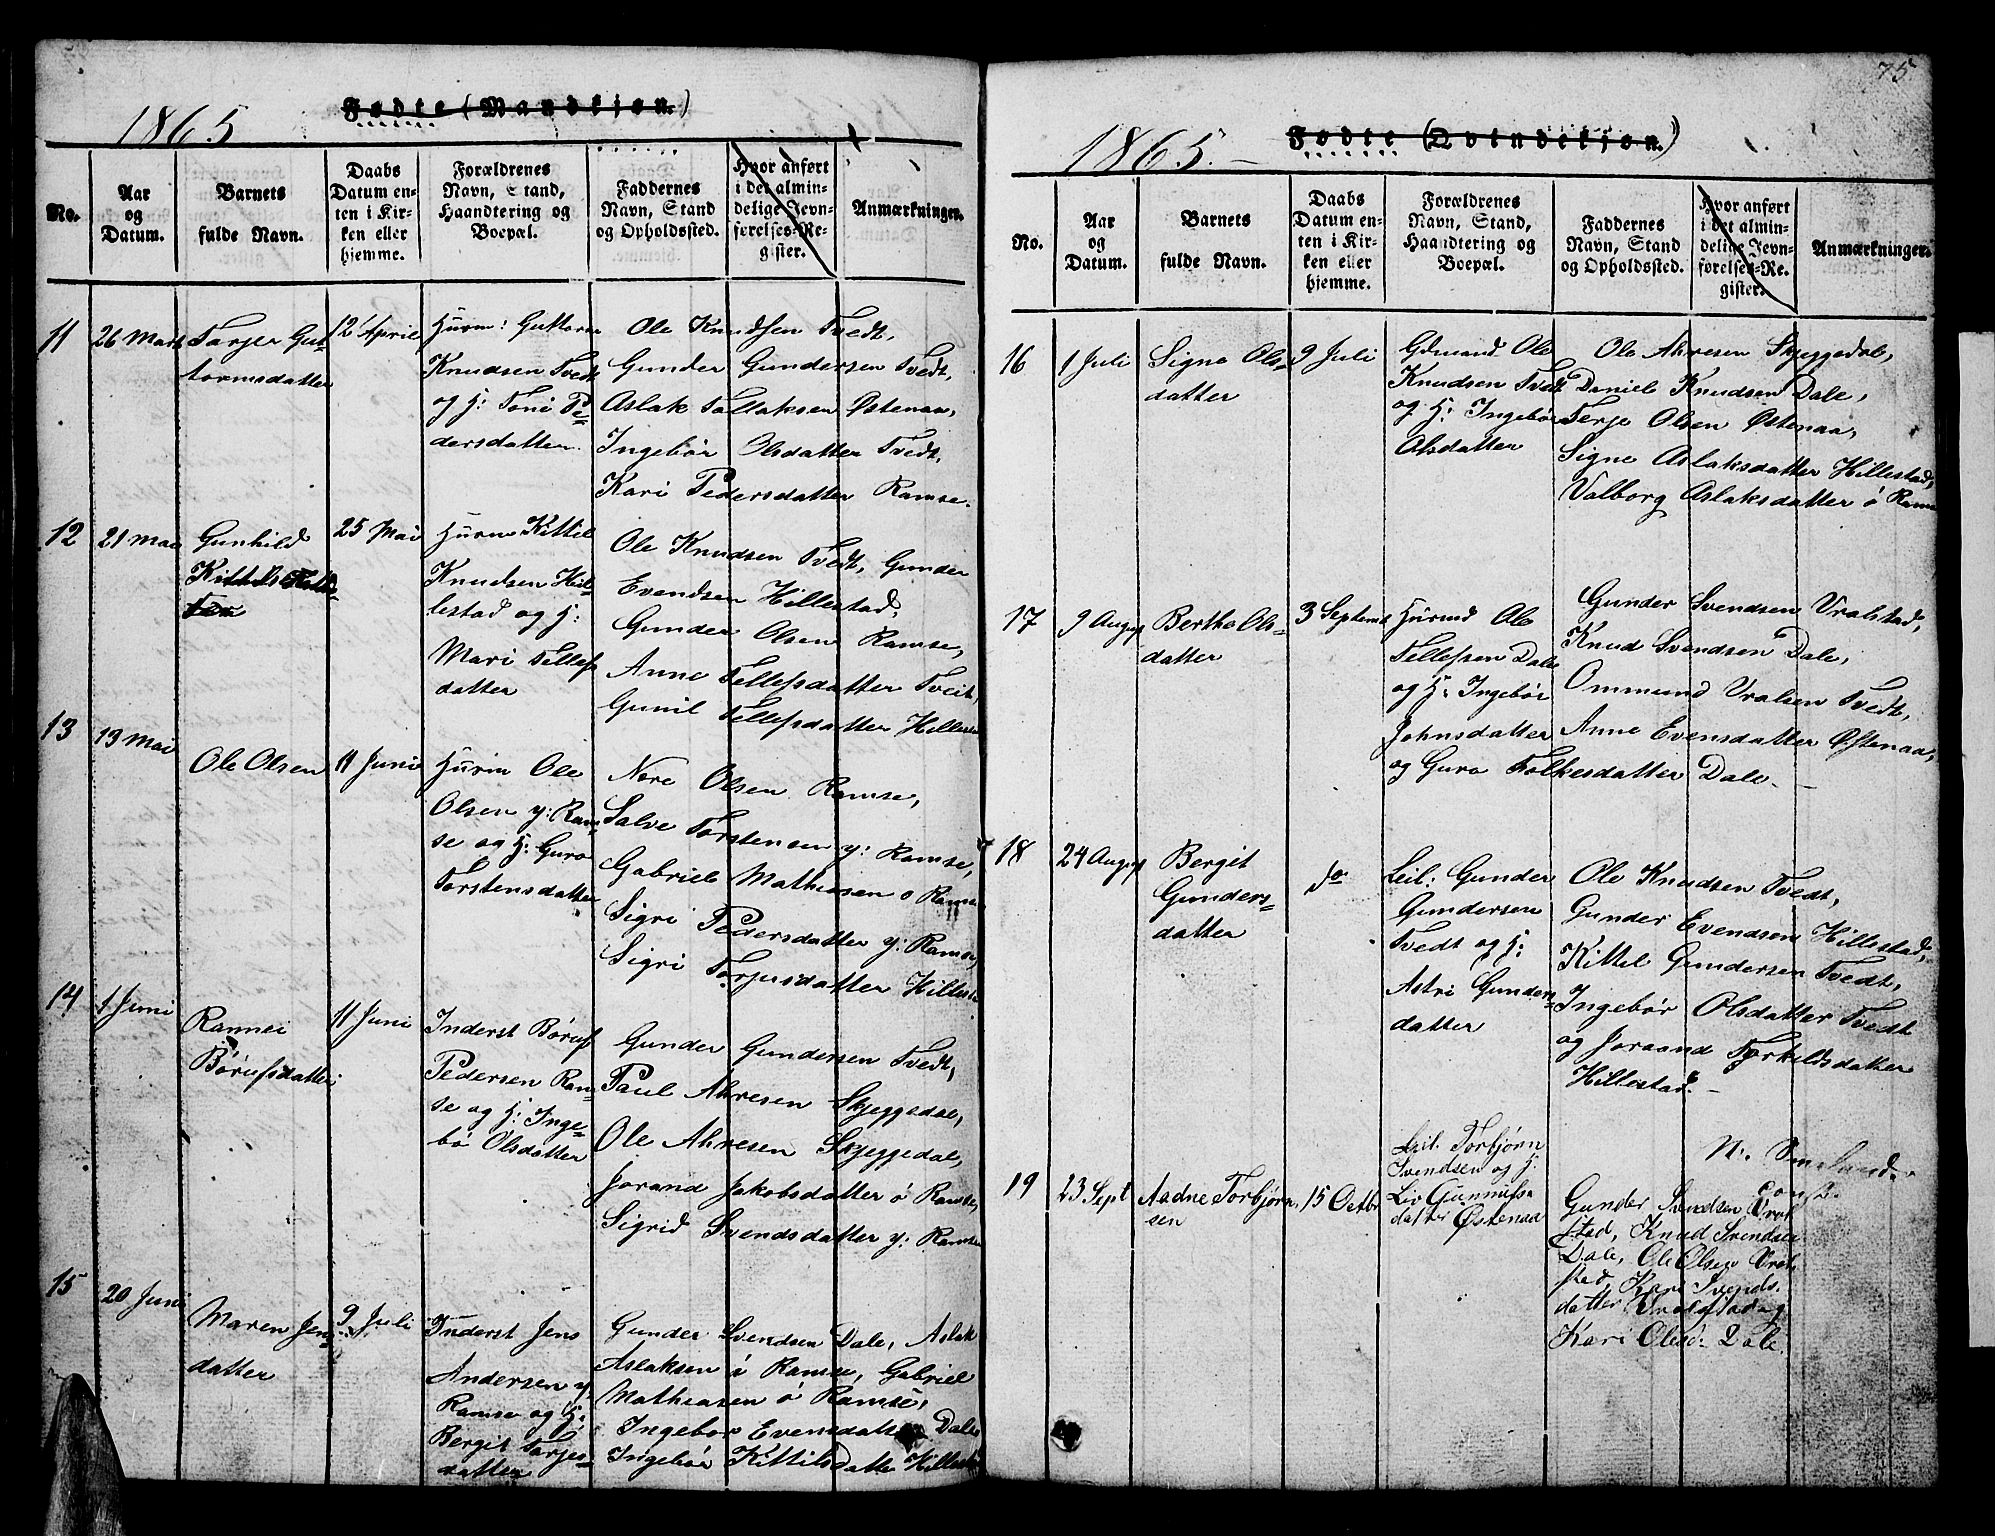 1865
Fødte (Mandkjøn.)
No.
Aar
og
Datum.
Barnets
fulde Navn.
Daabs
Datum en-
ten i Kir-
ken eller
hjemme.
Forældrenes
Navn, Stand,
Haandtering og
Boepæl.
Faddernes
Navn, Stand
og Opholdssted.
Hvor anført
i det almin-
delige Jevn-
førelses-Re-
gister.
Anmærkninger.
11
26 Mart
Tarjer Gut-
tormsdatter
12 April
Huusm: Guttorm
Knudsen Tvedt
og H: Toni Pe-
dersdatter.
Ole Knudsen Tvedt,
Gunder Gundersen Tvedt,
Aslak Tellaksen Østenaa,
Ingebør Olsdatter Tvedt,
Kari Pedersdatter Ramse.
12
21 Mai
Gunhild
25 Mai
Kittil
Knudsen Hil-
lestad og H:
Mari Tellefs
datter
Ole Knudsen Tvedt, Gunder
Evendsen Hillestad,
Gunder Olsen Ramse,
Anne Tellefsdatter Tveit,
Gunil Tellefsdatter Hillesta
13
19 Mai
Ole Olsen
11 Juni
Ole
Olsen y: Ram-
se og H: Guro
Torstensdatter
Nere Olsen Ramse,
Salve Torstensen y: Ramse,
Gabriel Mathiasen o Ramse
Sigri Pedersdatter y: Ramse,
Sigri Torjusdatter Hillesta
14
1 Juni
Rannei
Børufsdatter
11 Juni
Inderst Børuf
Pedersen Ram-
se og H: Inge-
bø Olsdatter
Gunder Gundersen Tvedt,
Paul Ahresen Skjeggedal,
Ole Ahresen Skjeggedal,
Jorand Jakobsdatter ó Ramse,
Sigrid Svendsdatter y: Ramse
15
20 Juni
Maren Jens-
datter
9 Juli
Inderst Jens
Andersen y:
Ramse og H:
Bergit Tarjes-
datter
Gunder Svendsen Dale, Aslak
Aslaksen ó Ramse, Gabriel
Mathiasen ó Ramse,
Ingebor Evensdatter Dale
Ingebør Kittilsdatte Hillesta
75
1865.
Fødte (Qvindekjøn.)
No.
Aar
og
Datum.
Barnets
fulde Navn.
Daabs
Datum en-
ten i Kir-
ken eller
hjemme.
Forældrenes
Navn, Stand,
Haandtering og
Boepæl.
Faddernes
Navn, Stand
og Opholdssted.
Hvor anført
i det almin-
delige Jevn-
førelses-Re-
gister.
Anmærkninger.
16
1 Juli
Signe Ols-
datter
9 Juli
Gdmand Ole
Knudsen Tvedt
og H: Ingebør
Olsdatter
Ole Ahresen Skjeggedal,
Daniel Knudsen Dale,
Terje Olsen Østenaa,
Signe Aslaksdatter Hillestad,
Valborg Aslaksdatter ó Ramse
17
9 August
Berthe Ols-
datter
3 Septemb
Ole
Tellefsen Dale
og H: Ingebør
Johnsdatter
Gunder Svendsen Vralstad,
Knud Svendsen Dale,
Ommund Vralsen Tvedt,
Anne Evensdatter Østenaa,
og Guro Folkesdatter Dale.
18
24 August
Bergit
Gunders-
datter
do
Leil: Gunder
Gundersen
Tvedt og H:
Astri Gunders-
datter
Ole Knudsen Tvedt,
Gunder Evendsen Hillestad,
Kittel Gundersen Tvedt,
Ingebør Olsdatter Tvedt
og Joraand Torkildsdatter
Hillestad.
19
23 Sept
Aadne Torbjørn
sen
15 Octbr
Leil. Torbjørn
Svendsen og H:
Liv Gunnufs-
datter Østenaa
N. Smeland.
const.
Gunder Svendsen Vral
stad, Knud Svendsen
Dale, Ole Olsen Vral
sted, Kari Svends.
datter Vralstad og
Kari Olesd. Dale.